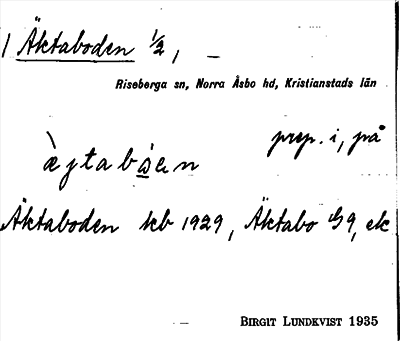 Äktaboden ½, –
Riseberga sn, Norra Åsbo hd, Kristianstads län
prep. i, på
Äktaboden kb 1929, Äktabo
– BIRGIT LUNDKVIST 1935